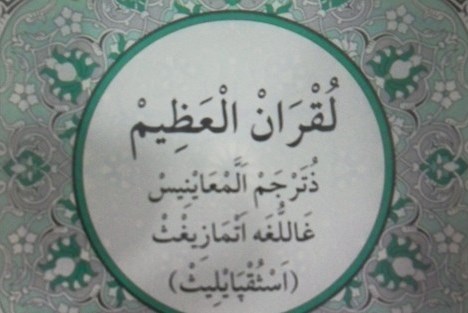 لُقْرَانْ الْعَظِيمْ
ذُتَرْجَمْ اَلْمَعَايْنِيسْ
غَاللُّغَه اَتْمَازِيغْثْ
(اَسْثُقْپَايْلِيثْ)